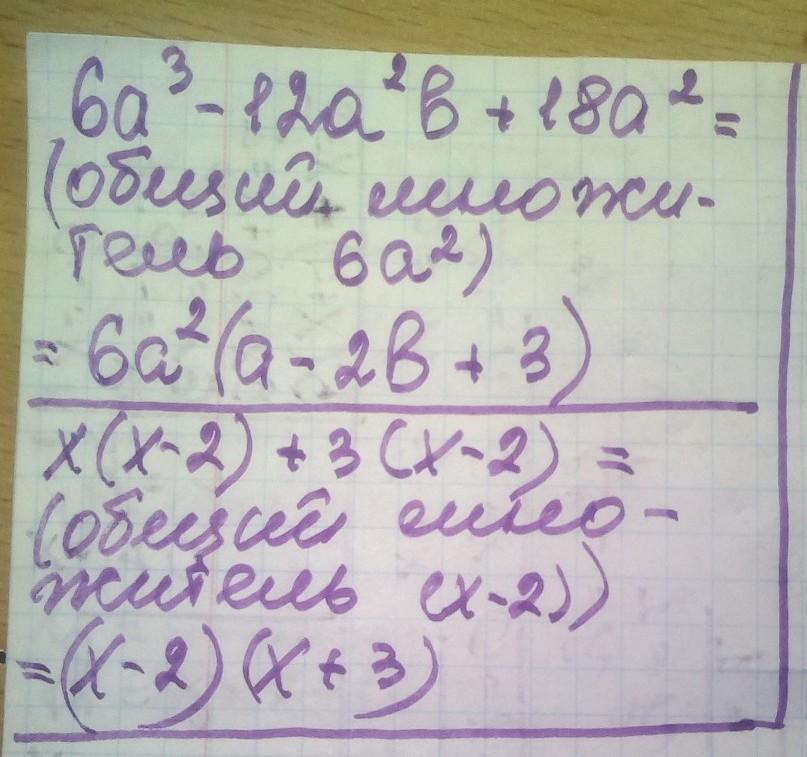 6a³ - 12a²b + 18a² =
(общий множи-
тель 6a²)
= 6a²(a - 2b + 3)
x(x-2) + 3(x-2) =
(общий мно-
житель (x-2))
= (x-2)(x+3)